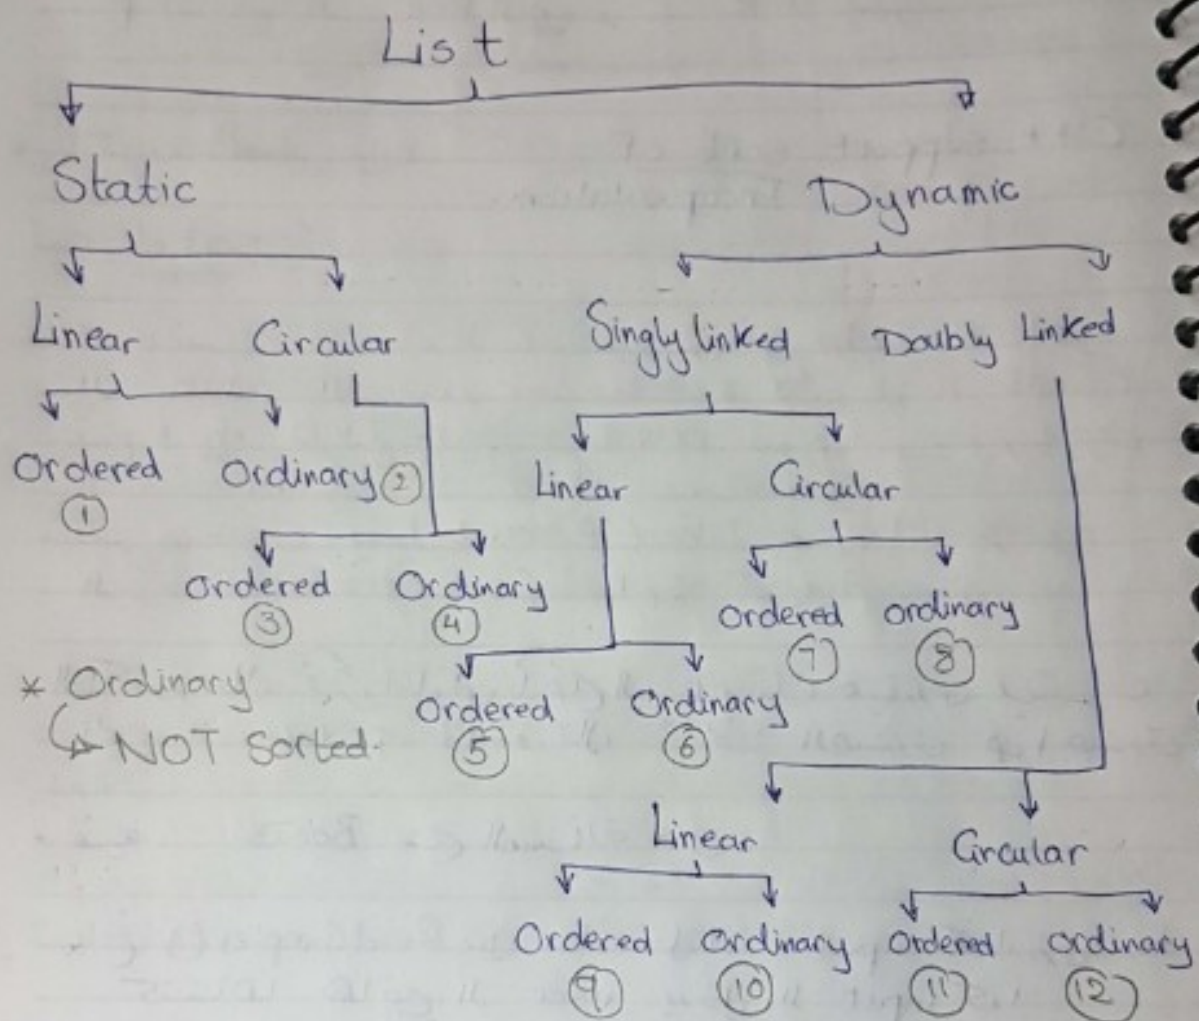 List
Static
Dynamic
Linear
Circular
Singly linked
Doubly Linked
Ordered
①
Ordinary ②
Linear
Circular
Ordered
③
Ordinary
④
Ordered
⑦
ordinary
⑧
* Ordinary
↳ NOT Sorted.
Ordered
⑤
Ordinary
⑥
Linear
Circular
Ordered
⑨
Ordinary
⑩
Ordered
⑪
ordinary
⑫